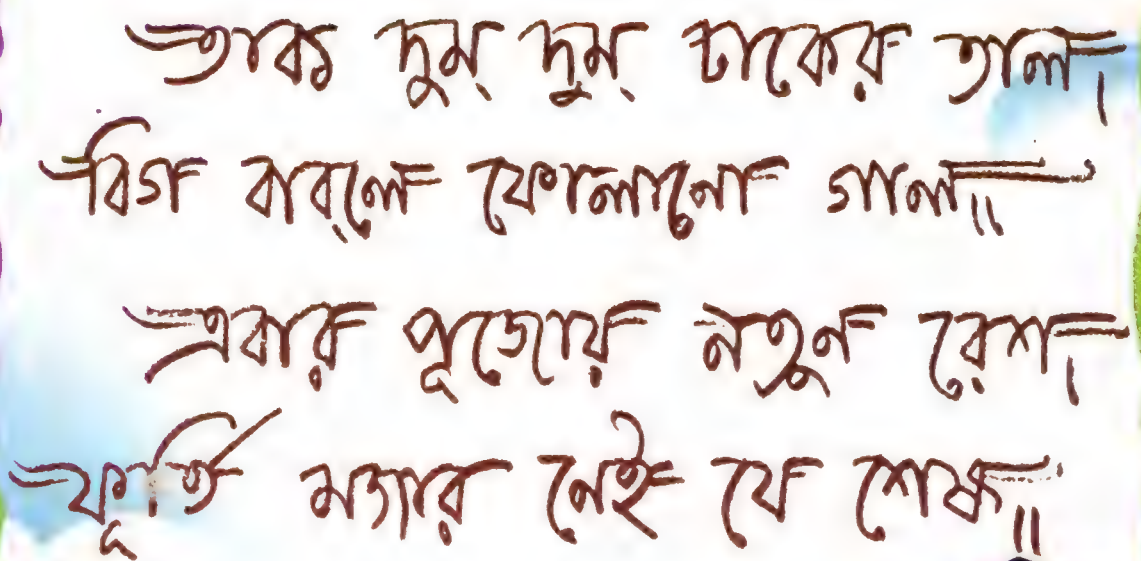 তাক দুম্ দুম্ ঢাকের তাল।
বিগ বাব্‌লে ফোলানো গাল॥
এবার পূজোয় নতুন রেশ।
ফূর্তি মজার নেই যে শেষ॥